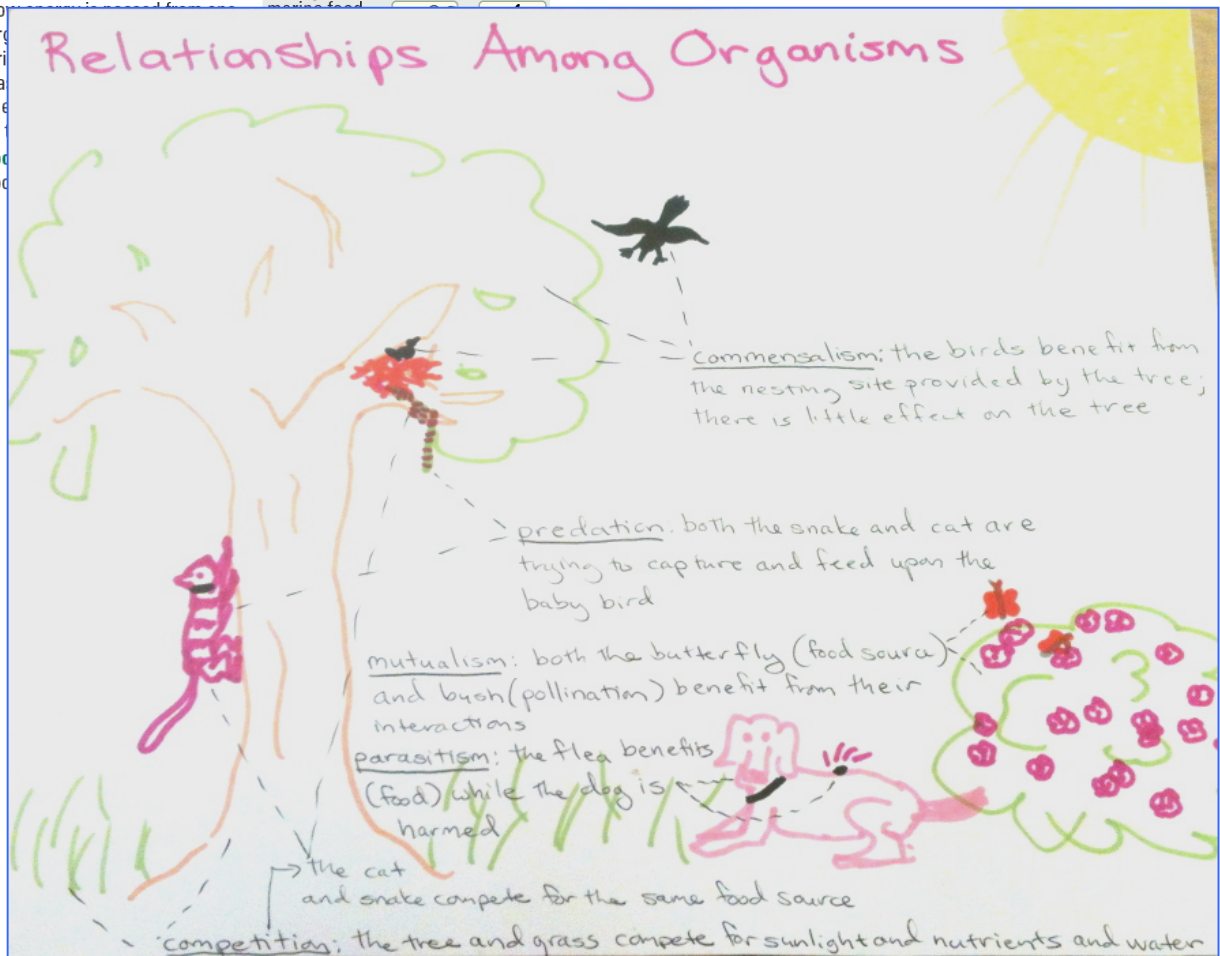 marine food
Relationships Among Organisms
commensalism: the birds benefit from
the nesting site provided by the tree;
there is little effect on the tree
predation: both the snake and cat are
trying to capture and feed upon the
baby bird
mutualism: both the butterfly (food source)
and bush (pollination) benefit from their
interactions
parasitism: the flea benefits
(food) while the dog is
harmed
the cat
and snake compete for the same food source
competition: the tree and grass compete for sunlight and nutrients and water